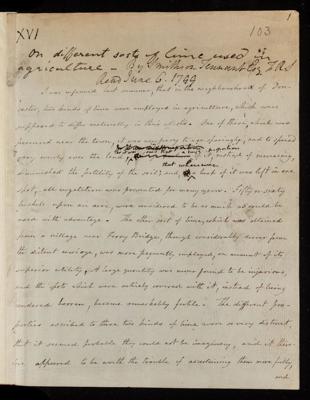 1
XVI
103
On different sorts of lime used in
agriculture - By Smithson Tennant Esq. F.R.S
Read June 6. 1799
I was informed last summer, that in the neighbourhood of Don-
caster, two kinds of lime were employed in agriculture, which were
supposed to differ materially in their effects. One of these, which was
procured near the town, it was necessary to use sparingly, and to spread
very evenly over the land; it, instead of increasing,
diminished the fertility of the soil; and, that wherever a heap of it was left in one
spot, all vegetation was prevented for many years. Fifty or sixty
bushels upon an acre, were considered to be as much as could be
used with advantage. The other sort of lime, which was obtained
from a village near Ferry-Bridge, though considerably dearer from
the distant carriage, was more frequently employed, on account of its
superior utility. A large quantity was never found to be injurious,
and the spots which were entirely covered with it, instead of being
rendered barren, became remarkably fertile. The different pro-
perties ascribed to these two kinds of lime were so very distinct,
that it seemed probable they could not be imaginary, and it there-
fore appeared to be worth the trouble of ascertaining them more fully,
and